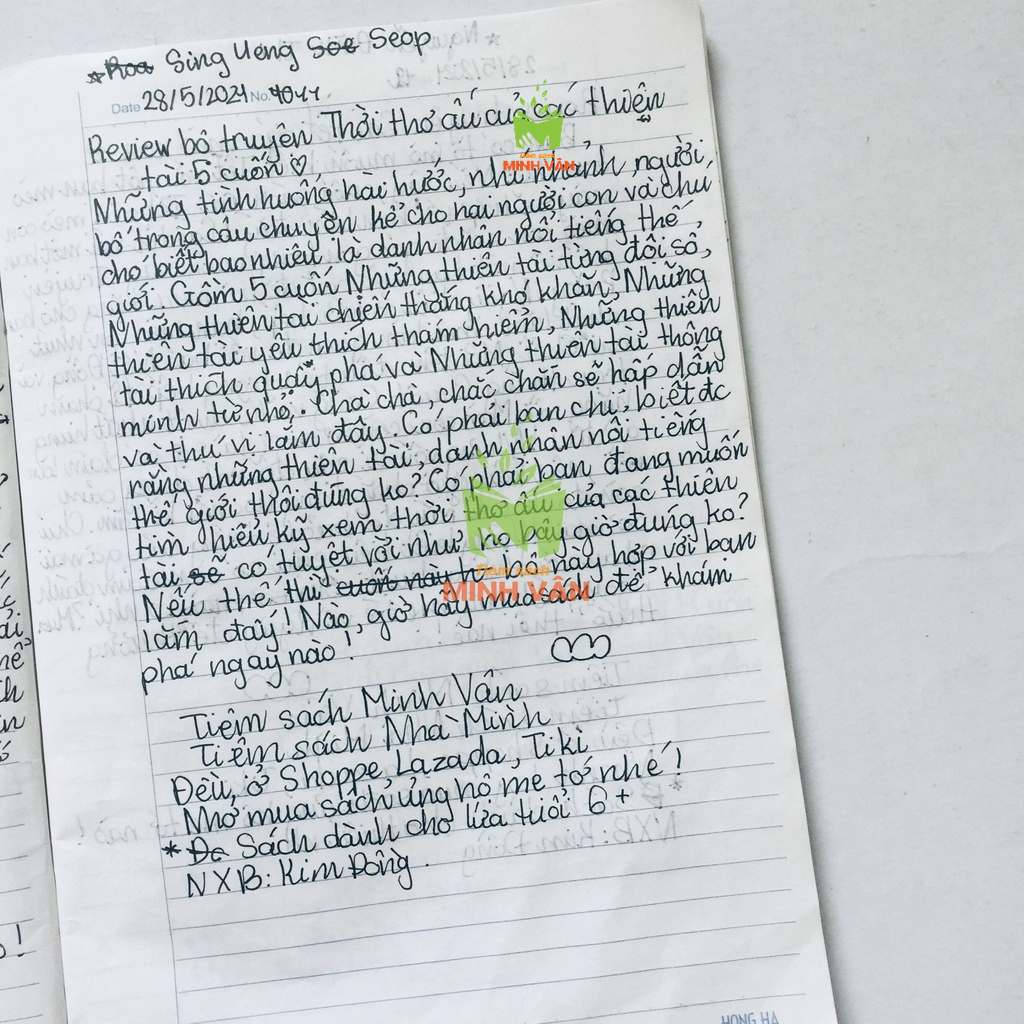 *Roa Sing Ueng Soe Seop
Date 28/5/2021 No. 4044
Review bộ truyện Thời thơ ấu của các thiên
tài 5 cuốn ♡
Những tình huống hài hước, nhí nhảnh, người
bố trong câu chuyện kể cho hai người con và chú
chó biết bao nhiêu là danh nhân nổi tiếng thế
giới. Gồm 5 cuốn Những thiên tài từng đội sổ,
Những thiên tài chiến thắng khó khăn, Những
thiên tài yêu thích thám hiểm, Những thiên
tài thích quậy phá và Những thiên tài thông
minh từ nhỏ. Chà chà, chắc chắn sẽ hấp dẫn
và thú vị lắm đây. Có phải bạn chỉ biết đc
rằng những thiên tài, danh nhân nổi tiếng
thế giới thôi đúng ko? Có phải bạn đang muốn
tìm hiểu kỹ xem thời thơ ấu của các thiên
tài sẽ có tuyệt vời như họ bây giờ đúng ko?
Nếu thế thì cuốn này bộ này hợp với bạn
lắm đấy! Nào, giờ hãy mua sách để khám
phá ngay nào!
Tiệm sách Minh Vân
Tiệm sách Nhà Mình
Đều ở Shoppe, Lazada, Tiki
Nhớ mua sách ủng hộ mẹ tớ nhé!
* Đc Sách dành cho lứa tuổi 6+
NXB: Kim Đồng.
HONG HA
MINH VÂN
Tiệm sách
MINH VÂN